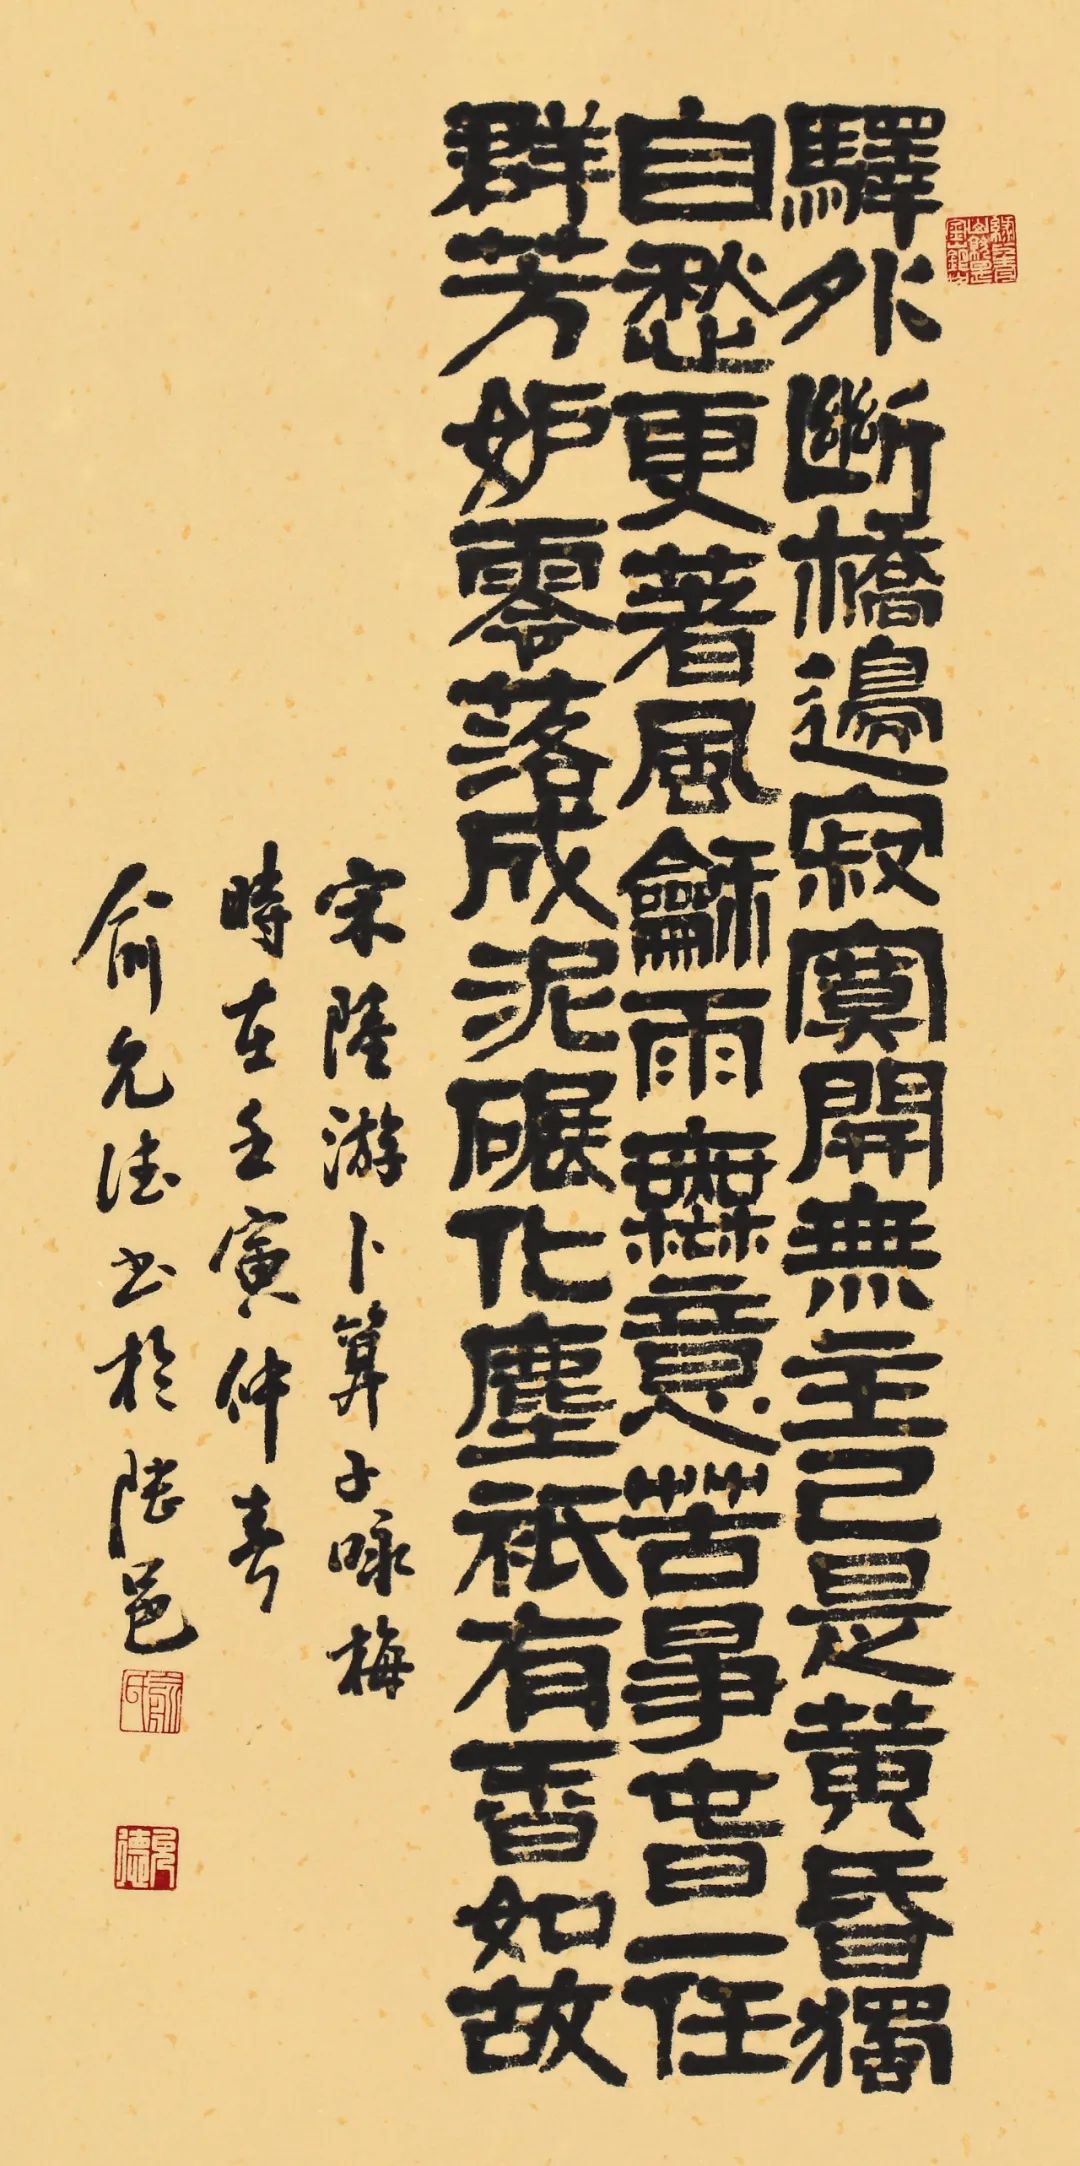 驛外斷橋邊寂寞開無主已是黄昏獨
自愁更著風龢雨無意苦爭春一任
群芳妒零落成泥碾化塵祇有香如故
宋陸游卜算子咏梅
時在壬寅仲春
俞允德书於陸邑
俞氏
允德